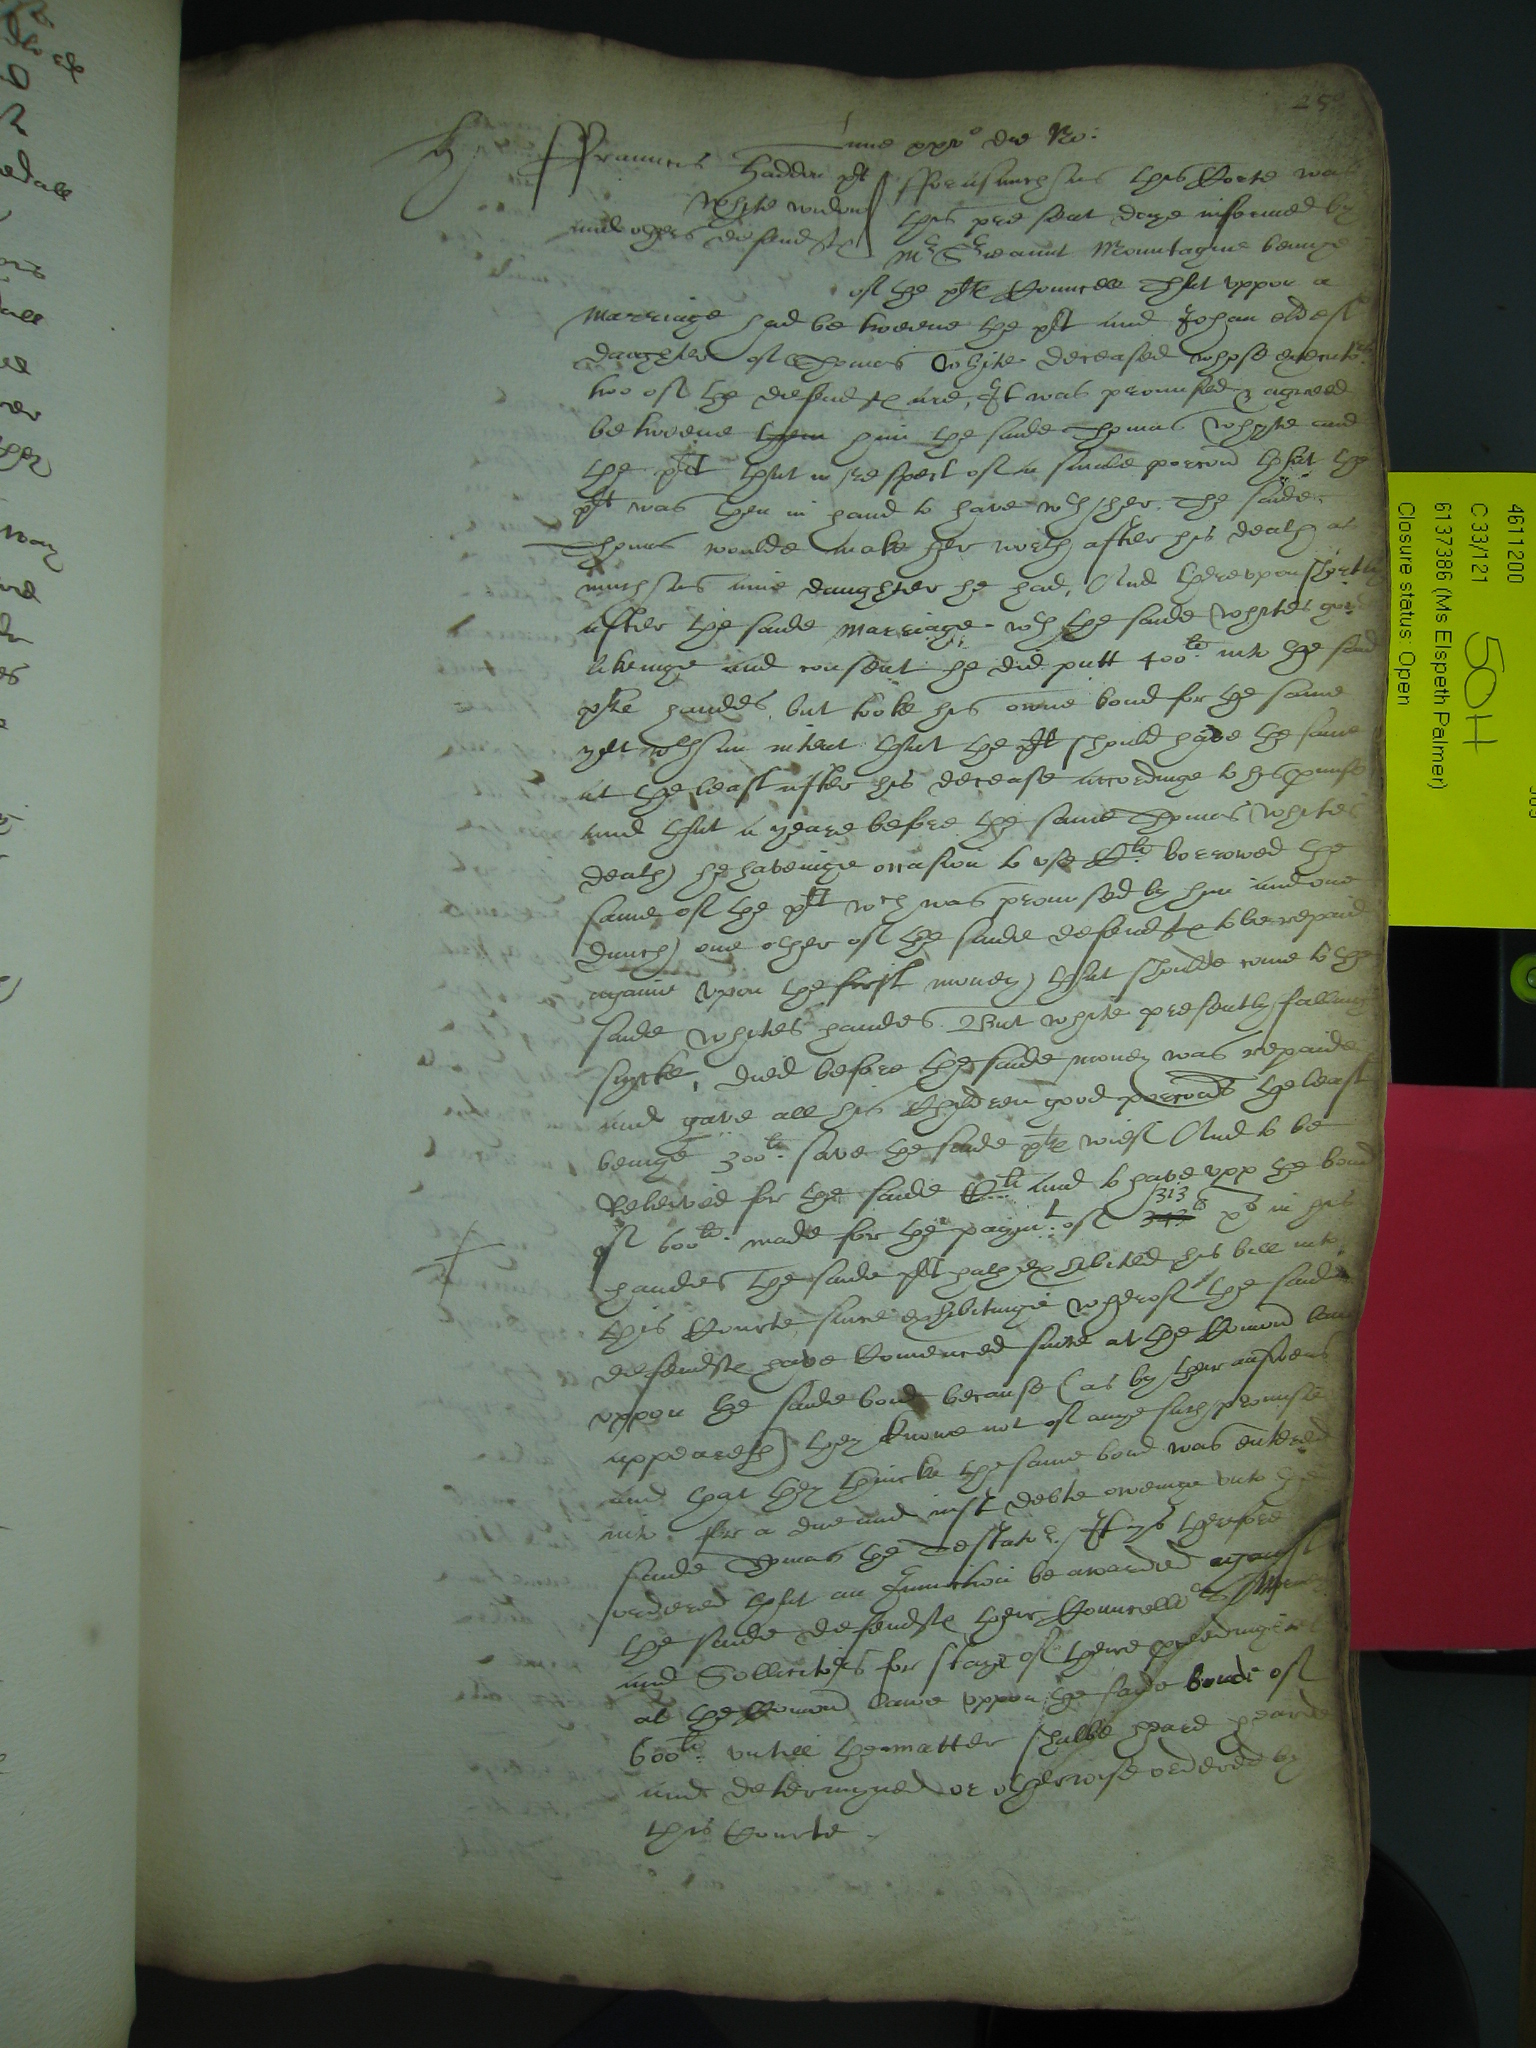 Lune xxxo die No:
Frauncis Haddon plt
White widowe
and others defendtes
Forasmuch as this Corte was
this present daye informed by
Mr Sergeaunt Mountague beinge
of the pltes Councell That uppon a
marriage had betweene the plt and Johan eldest
daughter of Thomas White deceased whose executors
two of the defendtes are, It was promised & agreed
betweene them him the saide Thomas Whyte and
the plt that in respect of a smale porcion that the
plt was then in hand to have wth her. The saide
Thomas woulde make her worth after his death as
much as anie daughter he had, And thereupon shortly
after the saide marriage wth the saide Whites good
likeinge and consent he did putt 400li into the said
pltes handes, but tooke his owne bond for the same
yet wth an intent that the plt should have the same
at the least after his decease accordinge to his promise
and that a yeare before the same Thomas Whites
death he haveinge occasion to use Cli borrowed the
same of the plt wch was promised by him and one
Dunch one other of the saide defendtes to be repaid
againe upon the first money that shoulde come to the
saide Whites handes. But White presently fallinge
sycke, died before the saide money was repaide
and gave all his Children good porcions the least
beinge 300li save the saide pltes wief And to be
Releived for the saide Cli and to have upp the bond
of 600li made for the paymt of 343li 313 in his
handes the saide plt hath exhibited his bill into
this Courte, since exhibitinge wherof the saide
defendtes have Comenced suite at the Comon lawe
uppon the saide bond because (as by their answers
appeareth) they knowe not of anye such promise
and that they thincke the same bond was entered
into for a due and just debte oweinge unto the
saide Thomas the Testator. It ys therefore
ordered that an Iniunction be awarded against
the saide defendtes their Councello
and Sollicitors for staye of theire proceedinges
at the Comon lawe uppon the saide bonde of
600li untill the matter shalbe heard hearde
and determyned or otherwise ordered by
this Courte.
4611200
C 33/121
50H
6137386 (Ms Elspeth Palmer)
Closure status: Open